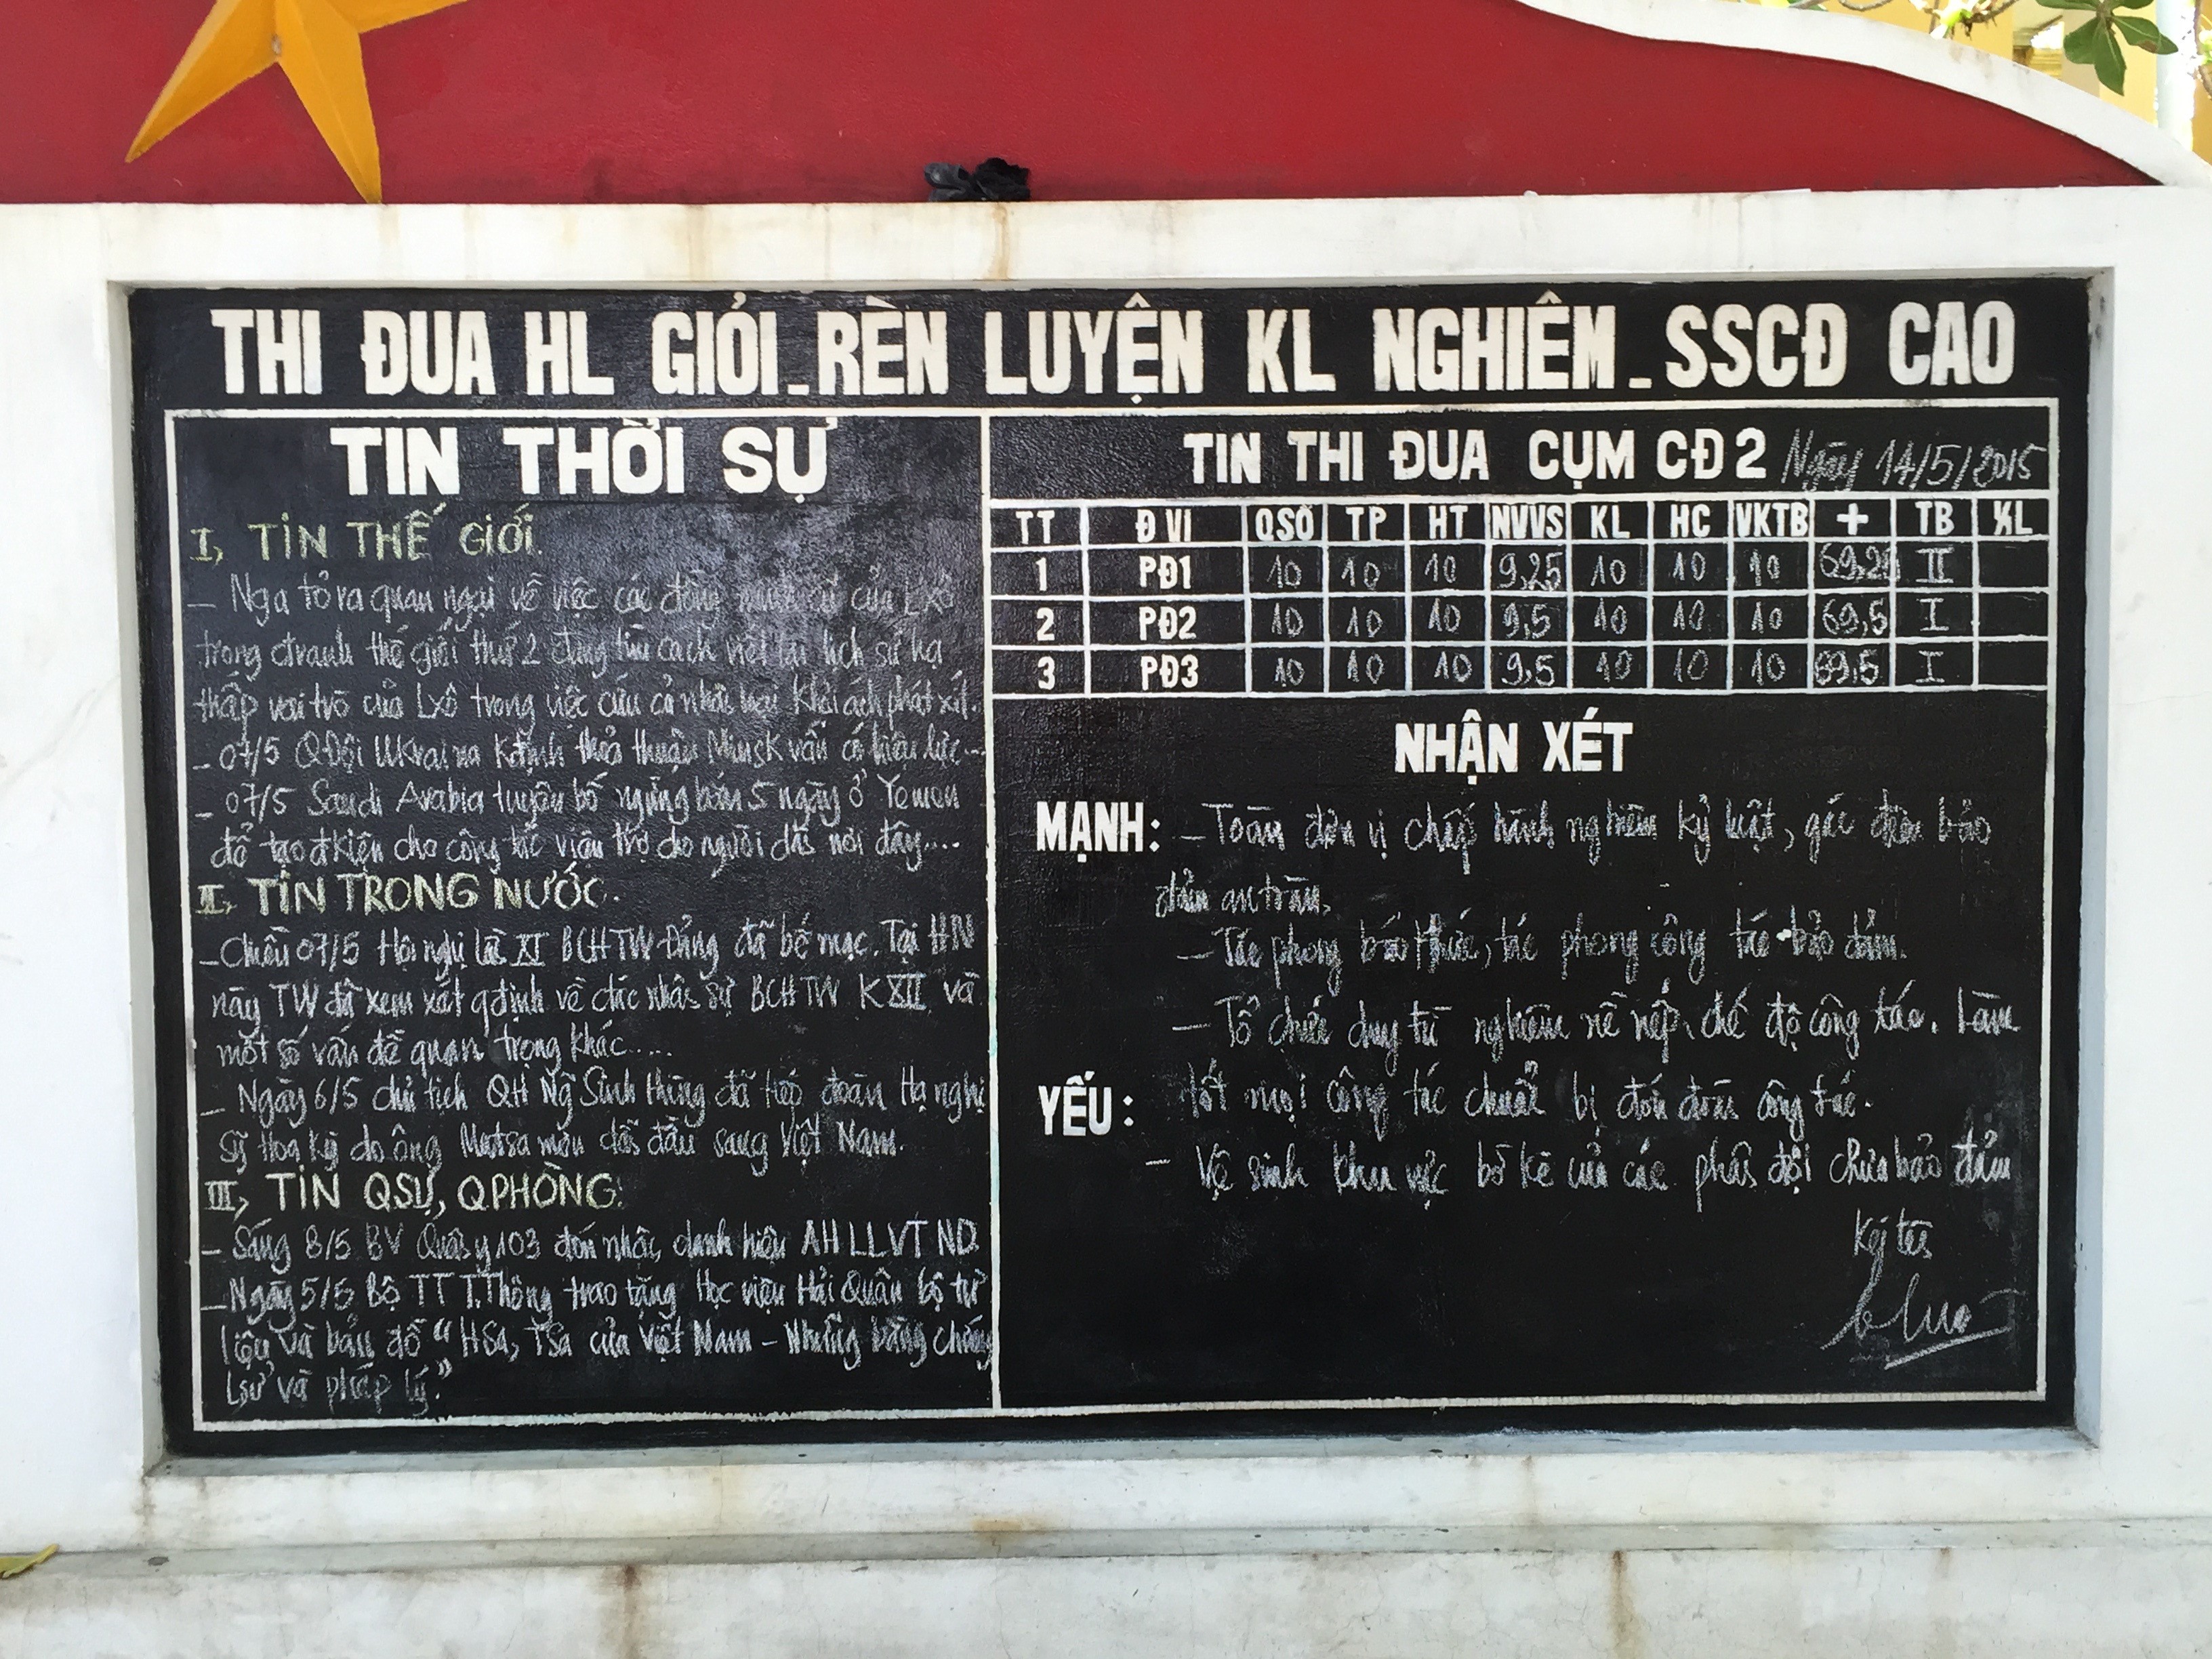 THI ĐUA HL GIỎI - RÈN LUYỆN KL NGHIÊM - SSCĐ CAO
TIN THỜI SỰ
I, TIN THẾ GIỚI.
- Nga tỏ ra quan ngại về việc các đồng minh cũ của LXô
trong ctranh thế giới thứ 2 đang tìm cách viết lại lịch sử hạ
thấp vai trò của LXô trong việc cứu cả nhân loại khỏi ách phát xít.
- 07/5 QĐội Ukraina kđịnh thỏa thuận Minsk vẫn có hiệu lực...
- 07/5 Saudi Arabia tuyên bố ngừng bắn 5 ngày ở Yemen
để tạo đkiện cho công tác viện trợ cho người dân nơi đây....
II, TIN TRONG NƯỚC.
- Chiều 07/5 Hội nghị lần XI BCHTW Đảng đã bế mạc. Tại HN
này TW đã xem xét qđịnh về ctác nhân sự BCHTW K XII và
một số vấn đề quan trọng khác....
- Ngày 6/5 chủ tịch QH Ng Sinh Hùng đã tiếp đoàn Hạ nghị
sỹ Hoa Kỳ do ông Matsa mon dẫn đầu sang Việt Nam.
III, TIN QSỰ, QPHÒNG:
- Sáng 8/5 BV Quân y 103 đón nhận danh hiệu AHLLVTND.
- Ngày 5/5 Bộ TTT.Thông trao tặng Học viện Hải Quân bộ tư
liệu và bản đồ "HSa, TSa của Việt Nam - Những bằng chứng
Lsử và pháp lý."
TIN THI ĐUA CỤM CĐ2 Ngày 14/5/2015
TT Đ VỊ QSỐ TP HT NVVS KL HC VKTB + TB X/L
1 PĐ1 10 10 10 9,25 10 10 10 69,25 II
2 PĐ2 10 10 10 9,5 10 10 10 69,5 I
3 PĐ3 10 10 10 9,5 10 10 10 69,5 I
NHẬN XÉT
MẠNH: - Toàn đơn vị chấp hành nghiêm kỷ luật, gác đêm bảo
đảm an toàn.
- Tác phong báo thức, tác phong công tác bảo đảm.
- Tổ chức duy trì nghiêm nề nếp, chế độ công tác. Làm
tốt mọi công tác chuẩn bị đón đoàn công tác.
YẾU:
- Vệ sinh khu vực bờ kè của các phân đội chưa bảo đảm
Ký tên